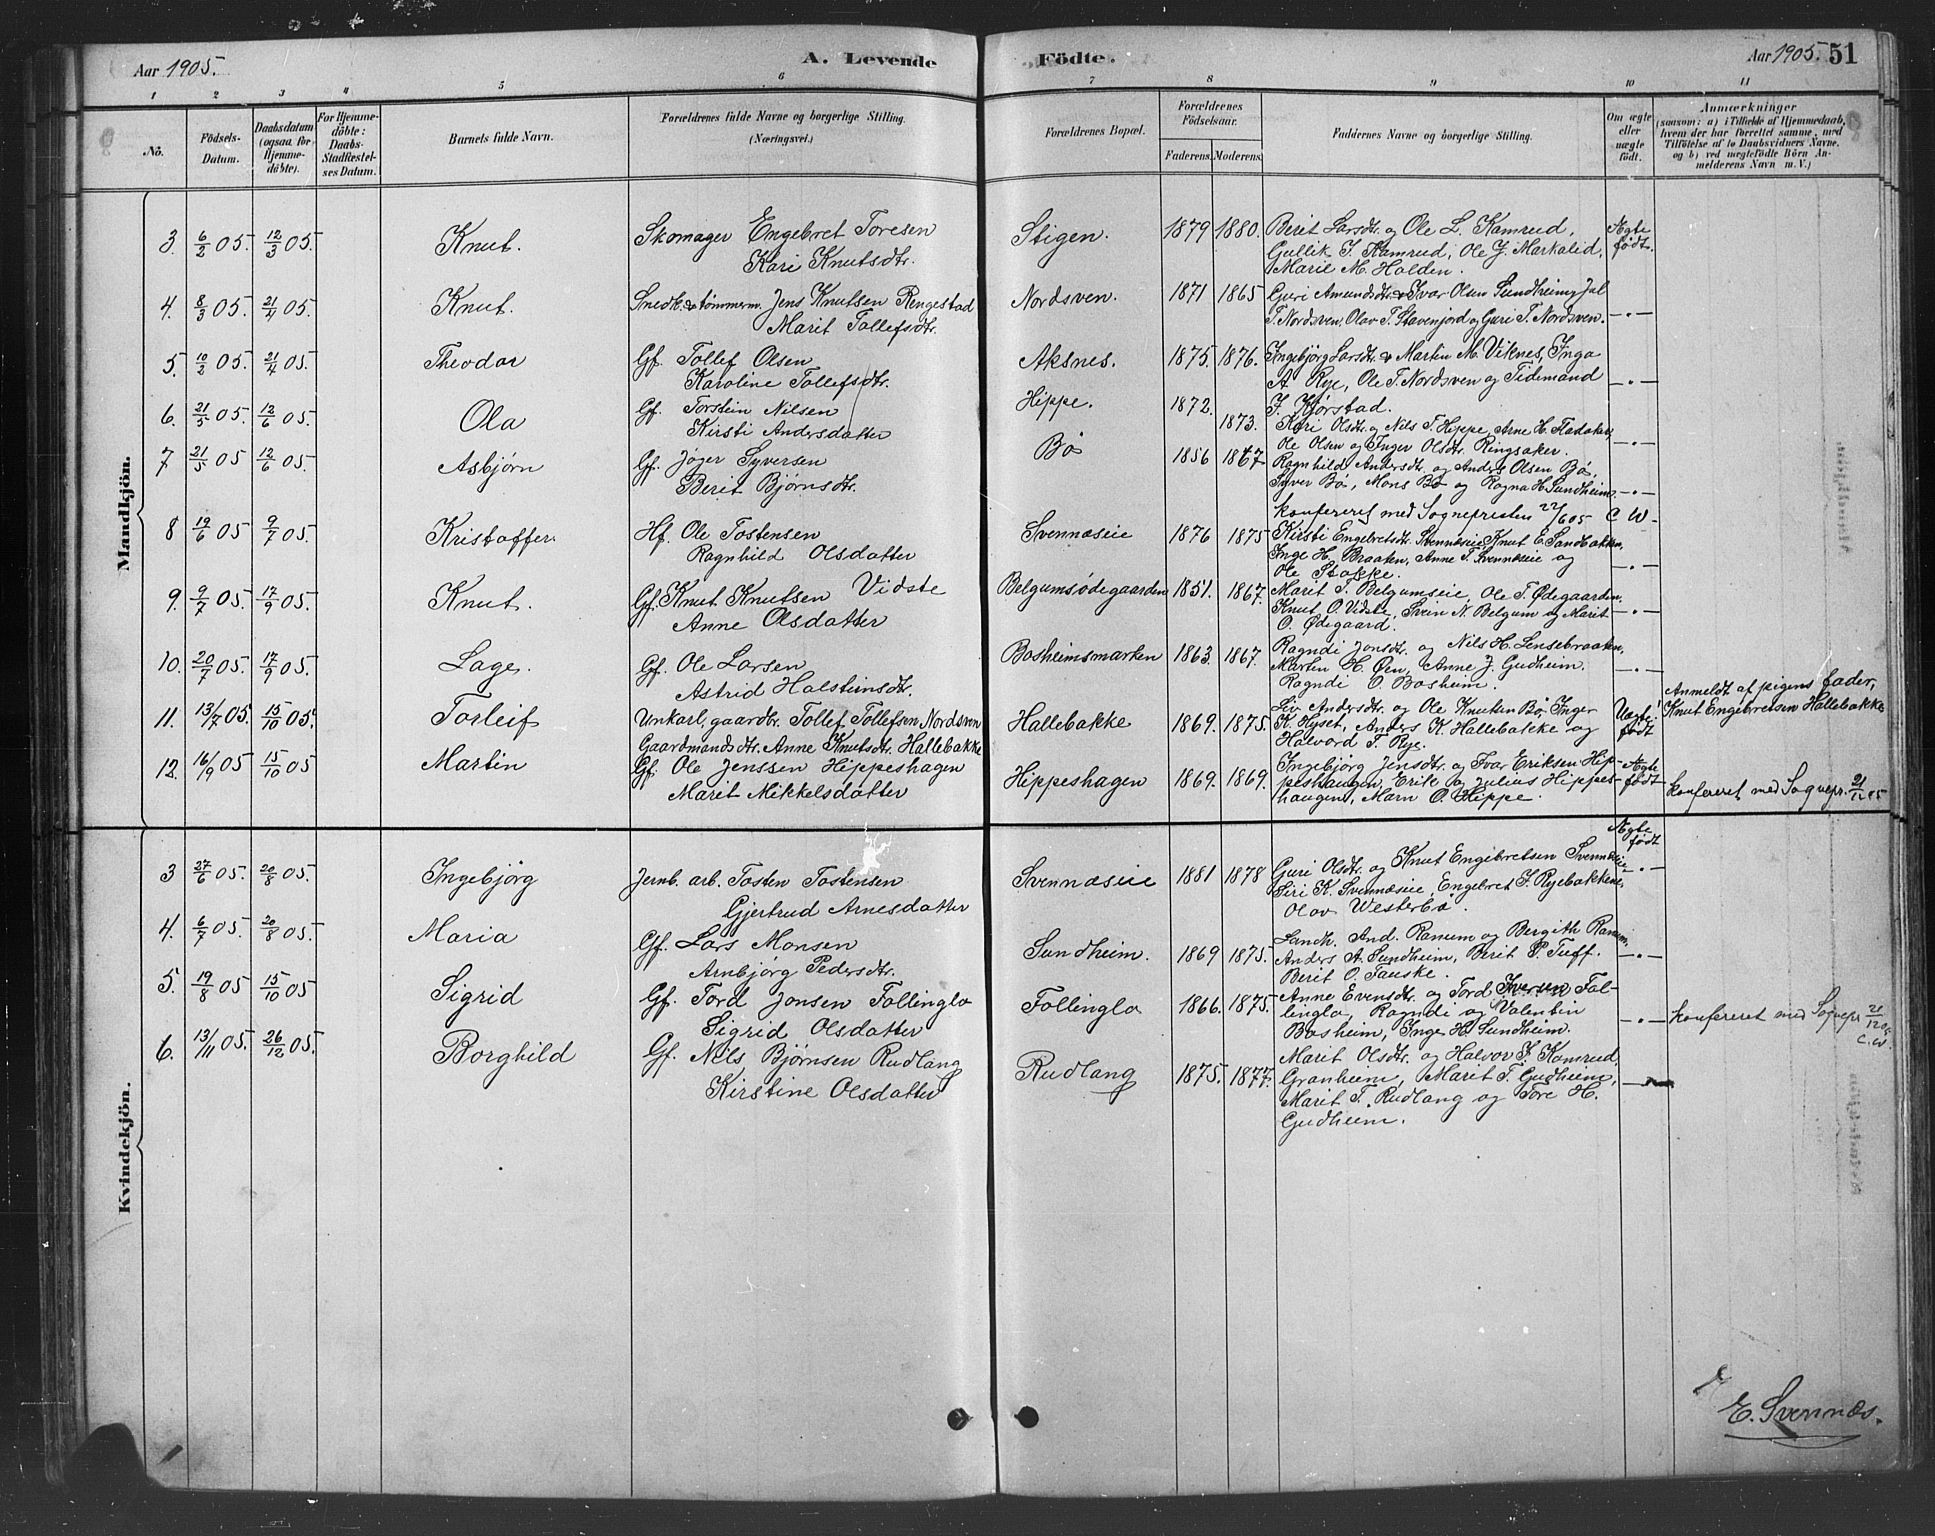 Aar 1905.
A. Levende Födte.
Aar 1905. 51
1 2 3 4 5 6 7 8 9 10 11
No.
Födsels-Datum.
Daabsdatum (ogsaa for Hjemmedöbte).
For Hjemmedöbte: Daabs-Stadfæstelses Datum.
Barnets fulde Navn.
Forældrenes fulde Navne og borgerlige Stilling. (Næringsvei.)
Forældrenes Bopæl.
Forældrenes Födselsaar.
Faderens. Moderens.
Faddernes Navne og borgerlige Stilling.
Om ægte eller uægte födt.
Anmærkninger
(saasom: a) i Tilfælde af Hjemmedaab, hvem der har forrettet samme, med Tilföielse af to Daabsvidners Navne. og b) ved uægtefödte Börn Anmelderens Navn m. V.)
Mandkjön.
3. 6/2 05. 12/3 05. Knut. Skomager Engebret Toresen
Kari Knutsdtr. Stigen. 1879 1880. Berit Larsdtr. og Ole L. Kamrud,
Gullik I. Kamrud, Ole J. Markalid,
Marie M. Holden. Ægte født.
4. 8/3 05. 21/4 05. Knut. Snedk. & tømmerm. Jens Knutsen Rengestad
Marit Tollefsdtr. Nordsven. 1871 1865 Guri Amundsdtr. & Ivar Olsen Sundheim, Jul
T. Nordsven, Olav T. Stavenjord og Guri T. Nordsven. —"—
5. 10/2 05. 21/4 05. Theodor Gf. Tollef Olsen
Karoline Tollefsdtr. Aksnes. 1875. 1876. Ingebjørg Larsdtr. & Martin M. Viknes, Inga
A. Rye, Ole T. Nordsven og Tidemand
I. Kjørstad. —"—
6. 21/5 05. 12/6 05. Ola Gf. Torstein Nilsen
Kirsti Andersdatter Hippe. 1872. 1873. Kari Olsdtr. og Nils T. Hippe, Arne H. Fladaker,
Ole Olsen og Inger Olsdtr. Ringsaker. —"—
7 21/5 05 12/6 05. Asbjørn Gf. Jøger Syversen
Berit Bjørnsdtr. Bø 1856 1867 Ragnhild Andersdtr. og Anders Olsen Bø,
Syver Bø, Mons Bø og Ragna H. Sundheim. —"—
konfereret med Sognepresten 22/6 05 C W.
8 19/6 05 9/7 05. Kristoffer. Hf. Ole Tostensen
Ragnhild Olsdatter Svennæseie 1876 1875 Kirsti Engebretsdtr. Svennæseie, Knut E. Sandbakken,
Inge H. Braaten, Anne T. Svennæseie og
Ole Stakke. —"—
9. 9/7 05. 17/9 05. Knut. Gf. Knut Knutsen Vidste
Anne Olsdatter Belgumsødegaarden 1851. 1867. Marit T. Belgumseie, Ole T. Ødegaarden,
Knut O. Vidste, Svein N. Belgum og Marit
O. Ødegaard. —"—
10. 20/7 05. 17/9 05. Lage. Gf. Ole Larsen
Astrid Halsteinsdtr. Bosheimsmarken 1863. 1867. Ragndi Jonsdtr. og Nils H. Lensebraaten,
Marten H. Øen, Anne J. Gudheim.
Ragndi O. Bosheim. —"—
11. 13/7 05. 15/10 05. Torleif Unkarl, gaardbr. Tollef Tollefsen Nordsven
Gaardmandsdtr. Anne Knutsdtr. Hallebakke Hallebakke 1869. 1875. Liv Andersdtr. og Ole Knutsen Bø, Inger
K. Hyset, Anders K. Hallebakke og
Halvord T. Rye. Uægte født Anmeldt af pigens fader,
Knut Engebretsen Hallebakke
12. 16/9 05 15/10 05 Martin Gf. Ole Jenssen Hippeshagen
Marit Mikkelsdatter Hippeshagen 1869. 1869. Ingebjørg Jensdtr. og Ivar Eriksen Hip-
peshaugen, Erik og Julius Hippes-
haugen, Marn O. Hippe. Ægte født konfereret med Sognepr. 21/12 05
Kvindekjön.
3 27/6 05. 20/8 05. Ingebjørg Jernb. arb. Tosten Tostensen
Gjertrud Arnesdatter Svennæseie 1881 1878 Guri Olsdtr. og Knut Engebretsen Svennæseie
Siri K. Svennæseie, Engebret I. Ryebakkene,
Olav Westerbø. Ægte født —"—
4. 6/7 05. 20/8 05. Maria Gf. Lars Monsen
Arnbjørg Pedersdtr. Sundheim. 1869 1875. Landh. And. Ranum og Bergith Ranum,
Anders A. Sundheim, Berit P. Tuff.
Berit O. Fauske. —"—
5. 19/8 05 15/10 05 Sigrid Gf. Tord Jonsen Follinglo
Sigrid Olsdatter Follinglo 1866. 1875. Anne Evensdtr. og Tord Iversen Fol-
linglo, Ragndi og Valentin
Bosheim, Inge H. Sundheim. —"— konfereret med Sognepr. 21/12 05
C. W.
6. 13/11 05. 26/12 05. Borghild Gf. Nils Bjørnsen Rudlang
Kirstine Olsdatter Rudlang 1875. 1877. Marit Olsdtr. og Halvor I. Kamrud,
Granheim, Marit T. Gudheim,
Marit T. Rudlang og Tore H.
Gudheim. —"—
E. Svennæs.